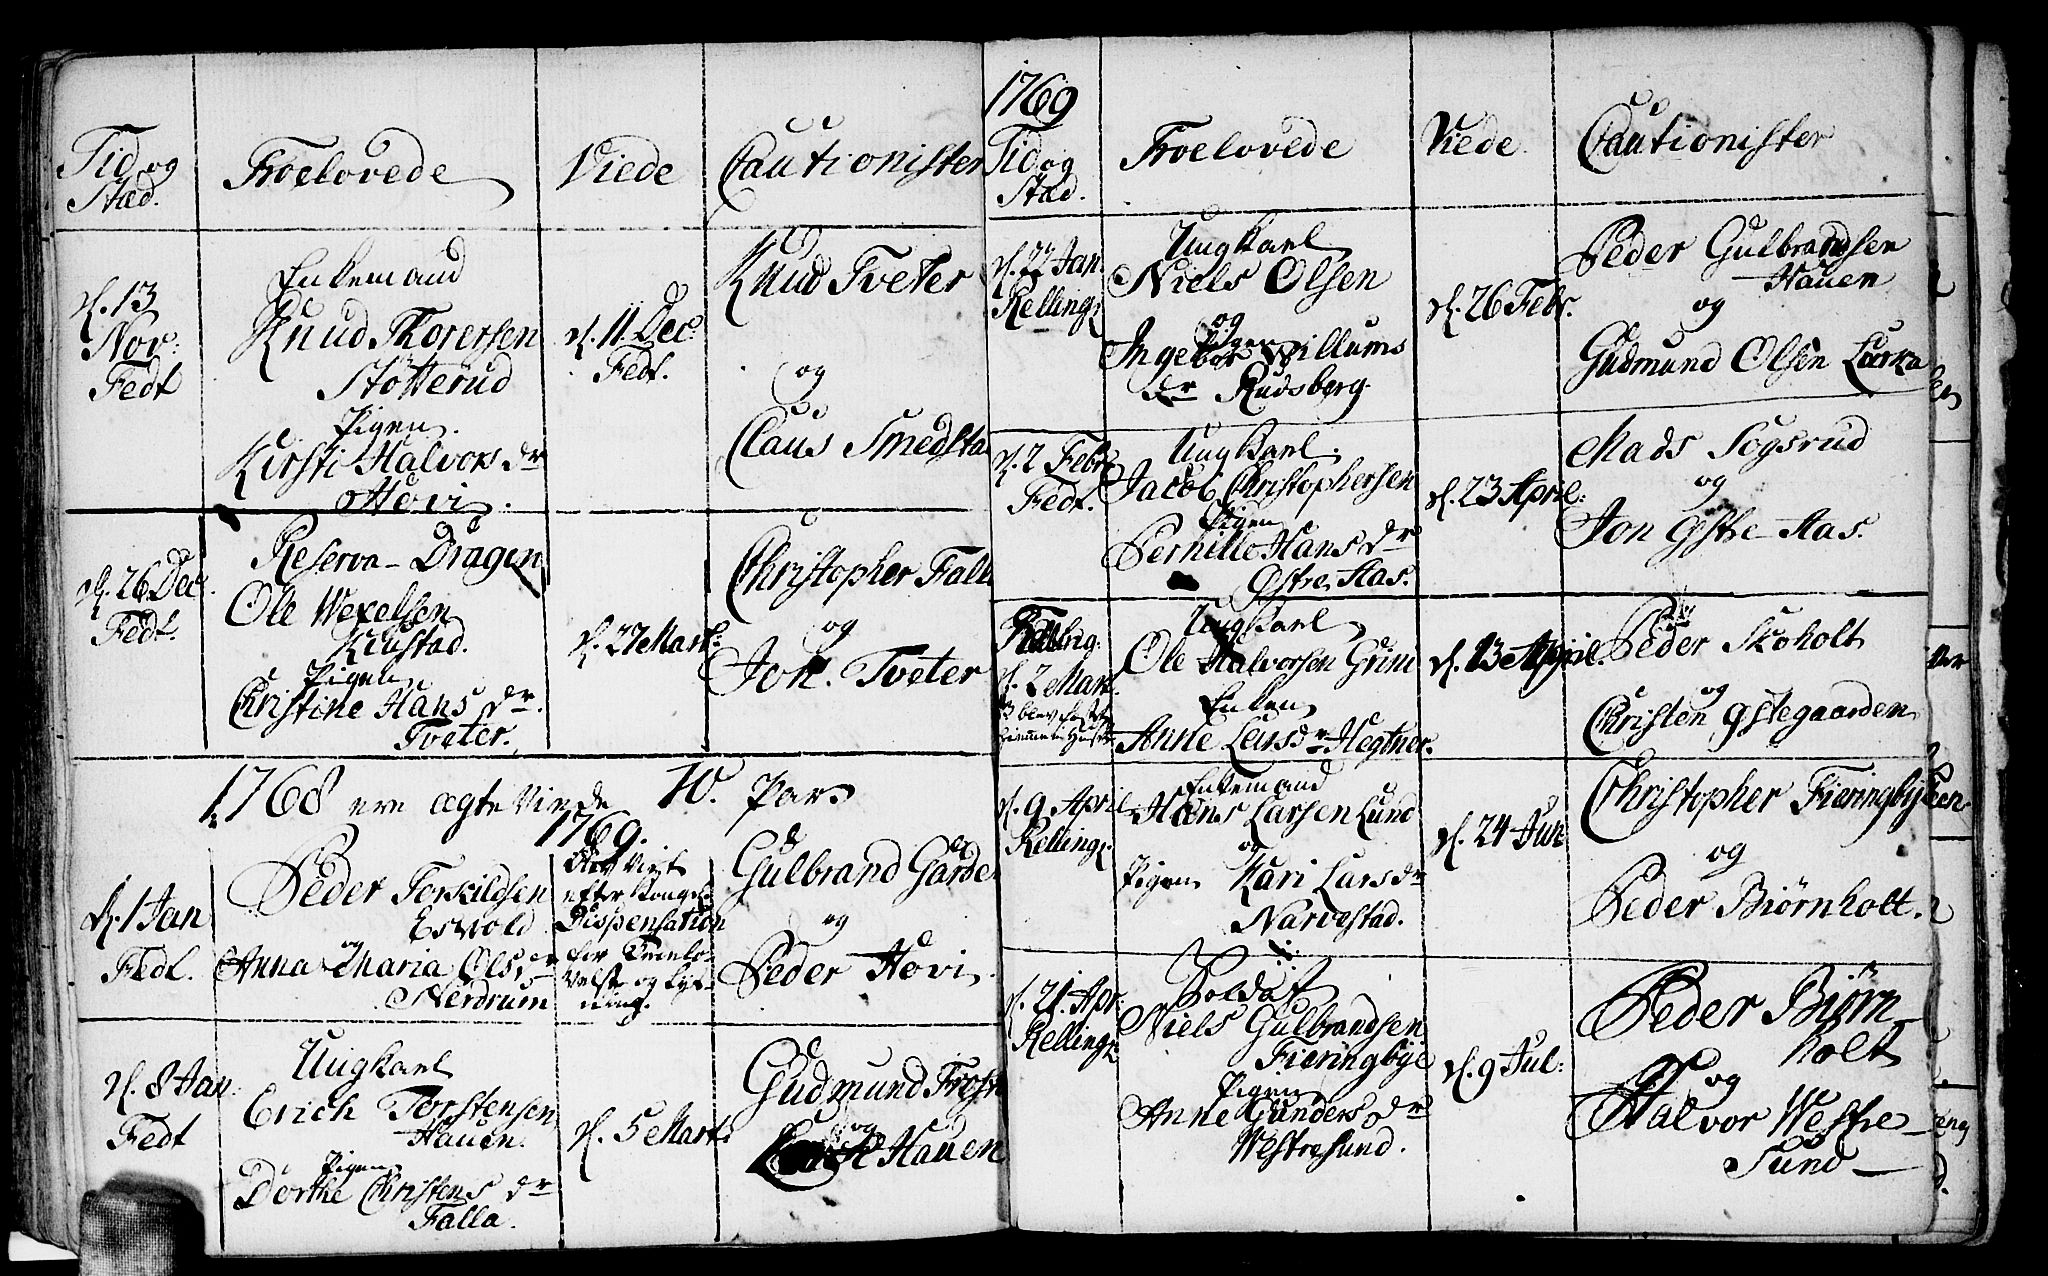 Tid og
Stæd.
Troelovede
Viede
Cautionister
d. 13
Nov:
Fedt
Enkemand
Knud Thorersen
Støtterud
Pigen
Kirsti Halvors dr
Hovi.
d. 11 Dec:
Fedt.
Knud Tveter
og
Claus Smedsta
d. 26 Dec:
Fedt.
Reserva-Dragun
Ole Wexelsen
Kiustad.
Pigen
Christine Hans dr.
Tveter.
d. 27 Mart:
Christopher Fall
og
Joh. Tveter
1768 ere ægte Viede 10. Par.
1769.
d. 1 Jan
Fedt.
Peder Torkildsen
Eswold
og
Anna Maria Ols dr
Nerdrum
Blev Viet
efter Kongel.
Dispensation
for Troelo-
velse og Lys-
ning.
Gulbrand Garde
og
Peder Hovi.
d. 8 Jan:
Fedt
Ungkarl
Erich Torstensen
Hauen.
Pigen
Dorthe Christens dr
Falla.
d. 5 Mart:
Gudmund Frosh
og
Hauen
1769
Tid og
Stæd.
Troelovede
Viede
Cautionister
d. 22 Jan.
Relling:
Ungkarl
Niels Olsen
og
Pigen
Ingebor Willums
dr Rudsberg
d. 26 Febr.
Peder Gulbrandsen
Hauen
og
Gudmund Olsen Lurka
d. 2 Febr:
Fedt.
Ungkarl.
Jacob Christophersen
Pigen
Pernille Hans dr
Østre Aas.
d. 23 April:
Mads Sogsrud
og
Jon Østre Aas.
d. 2 Mart.
Ungkarl
Ole Halvorsen Grini
Enken
Anne Lars dr Hegtner.
d. 23 April.
Peder Skoholt
og
Christen Østegaarden
d. 9 April
Relling:
Enkemand
Hans Larsen Lund
og
Pigen Kari Lars dr
Narvestad.
d. 24 Jun
Christopher Fieringby
og
Peder Biørnholt.
d. 21. Apr:
Relling:
Soldat
Niels Gulbrandsen
Fieringbye
Pigen
Anne Gunders dr
Westresund.
d. 9 Jul:
Peder Biørn-
holt
og
Halvor Westre-
Sund